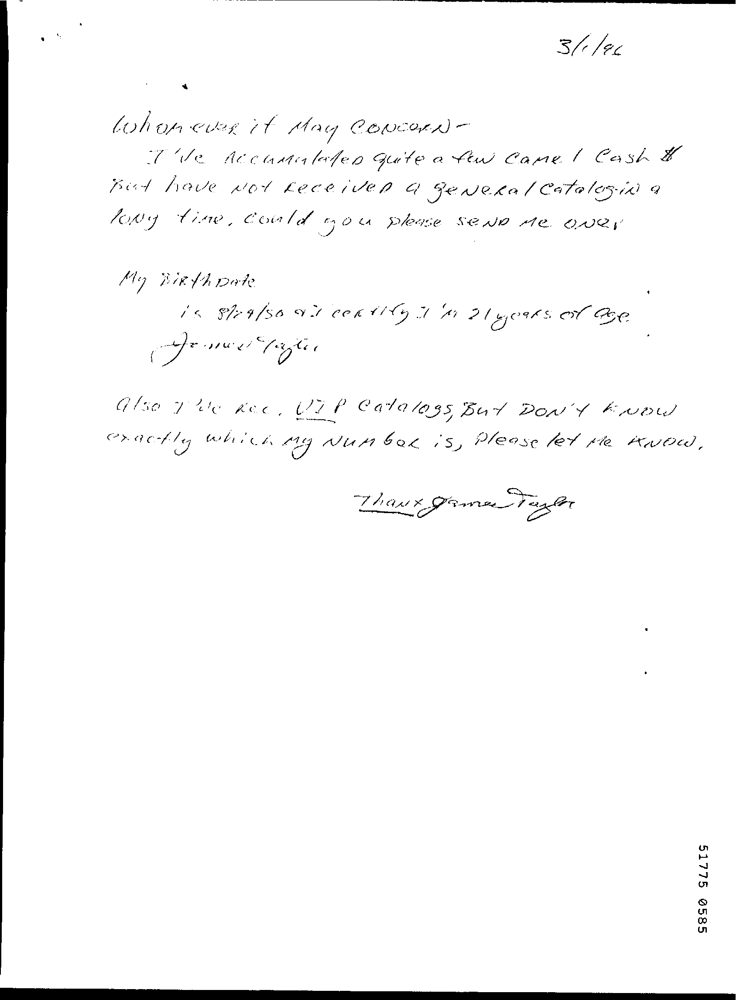 3/1/96
Whom ever it May Concern-
I've Accumulated quite a few Camel Cash $
But have Not Received a general Catalog in a
long time, could you please send Me one,
My BirthDate
is 8/29/50 I certify I'm 21 years of age
James Taylor
Also I've Rec. VIP Catalogs, But DON'T KNOW
exactly which My Number is, Please let Me KNOW.
Thanx James Taylor
51775 0585